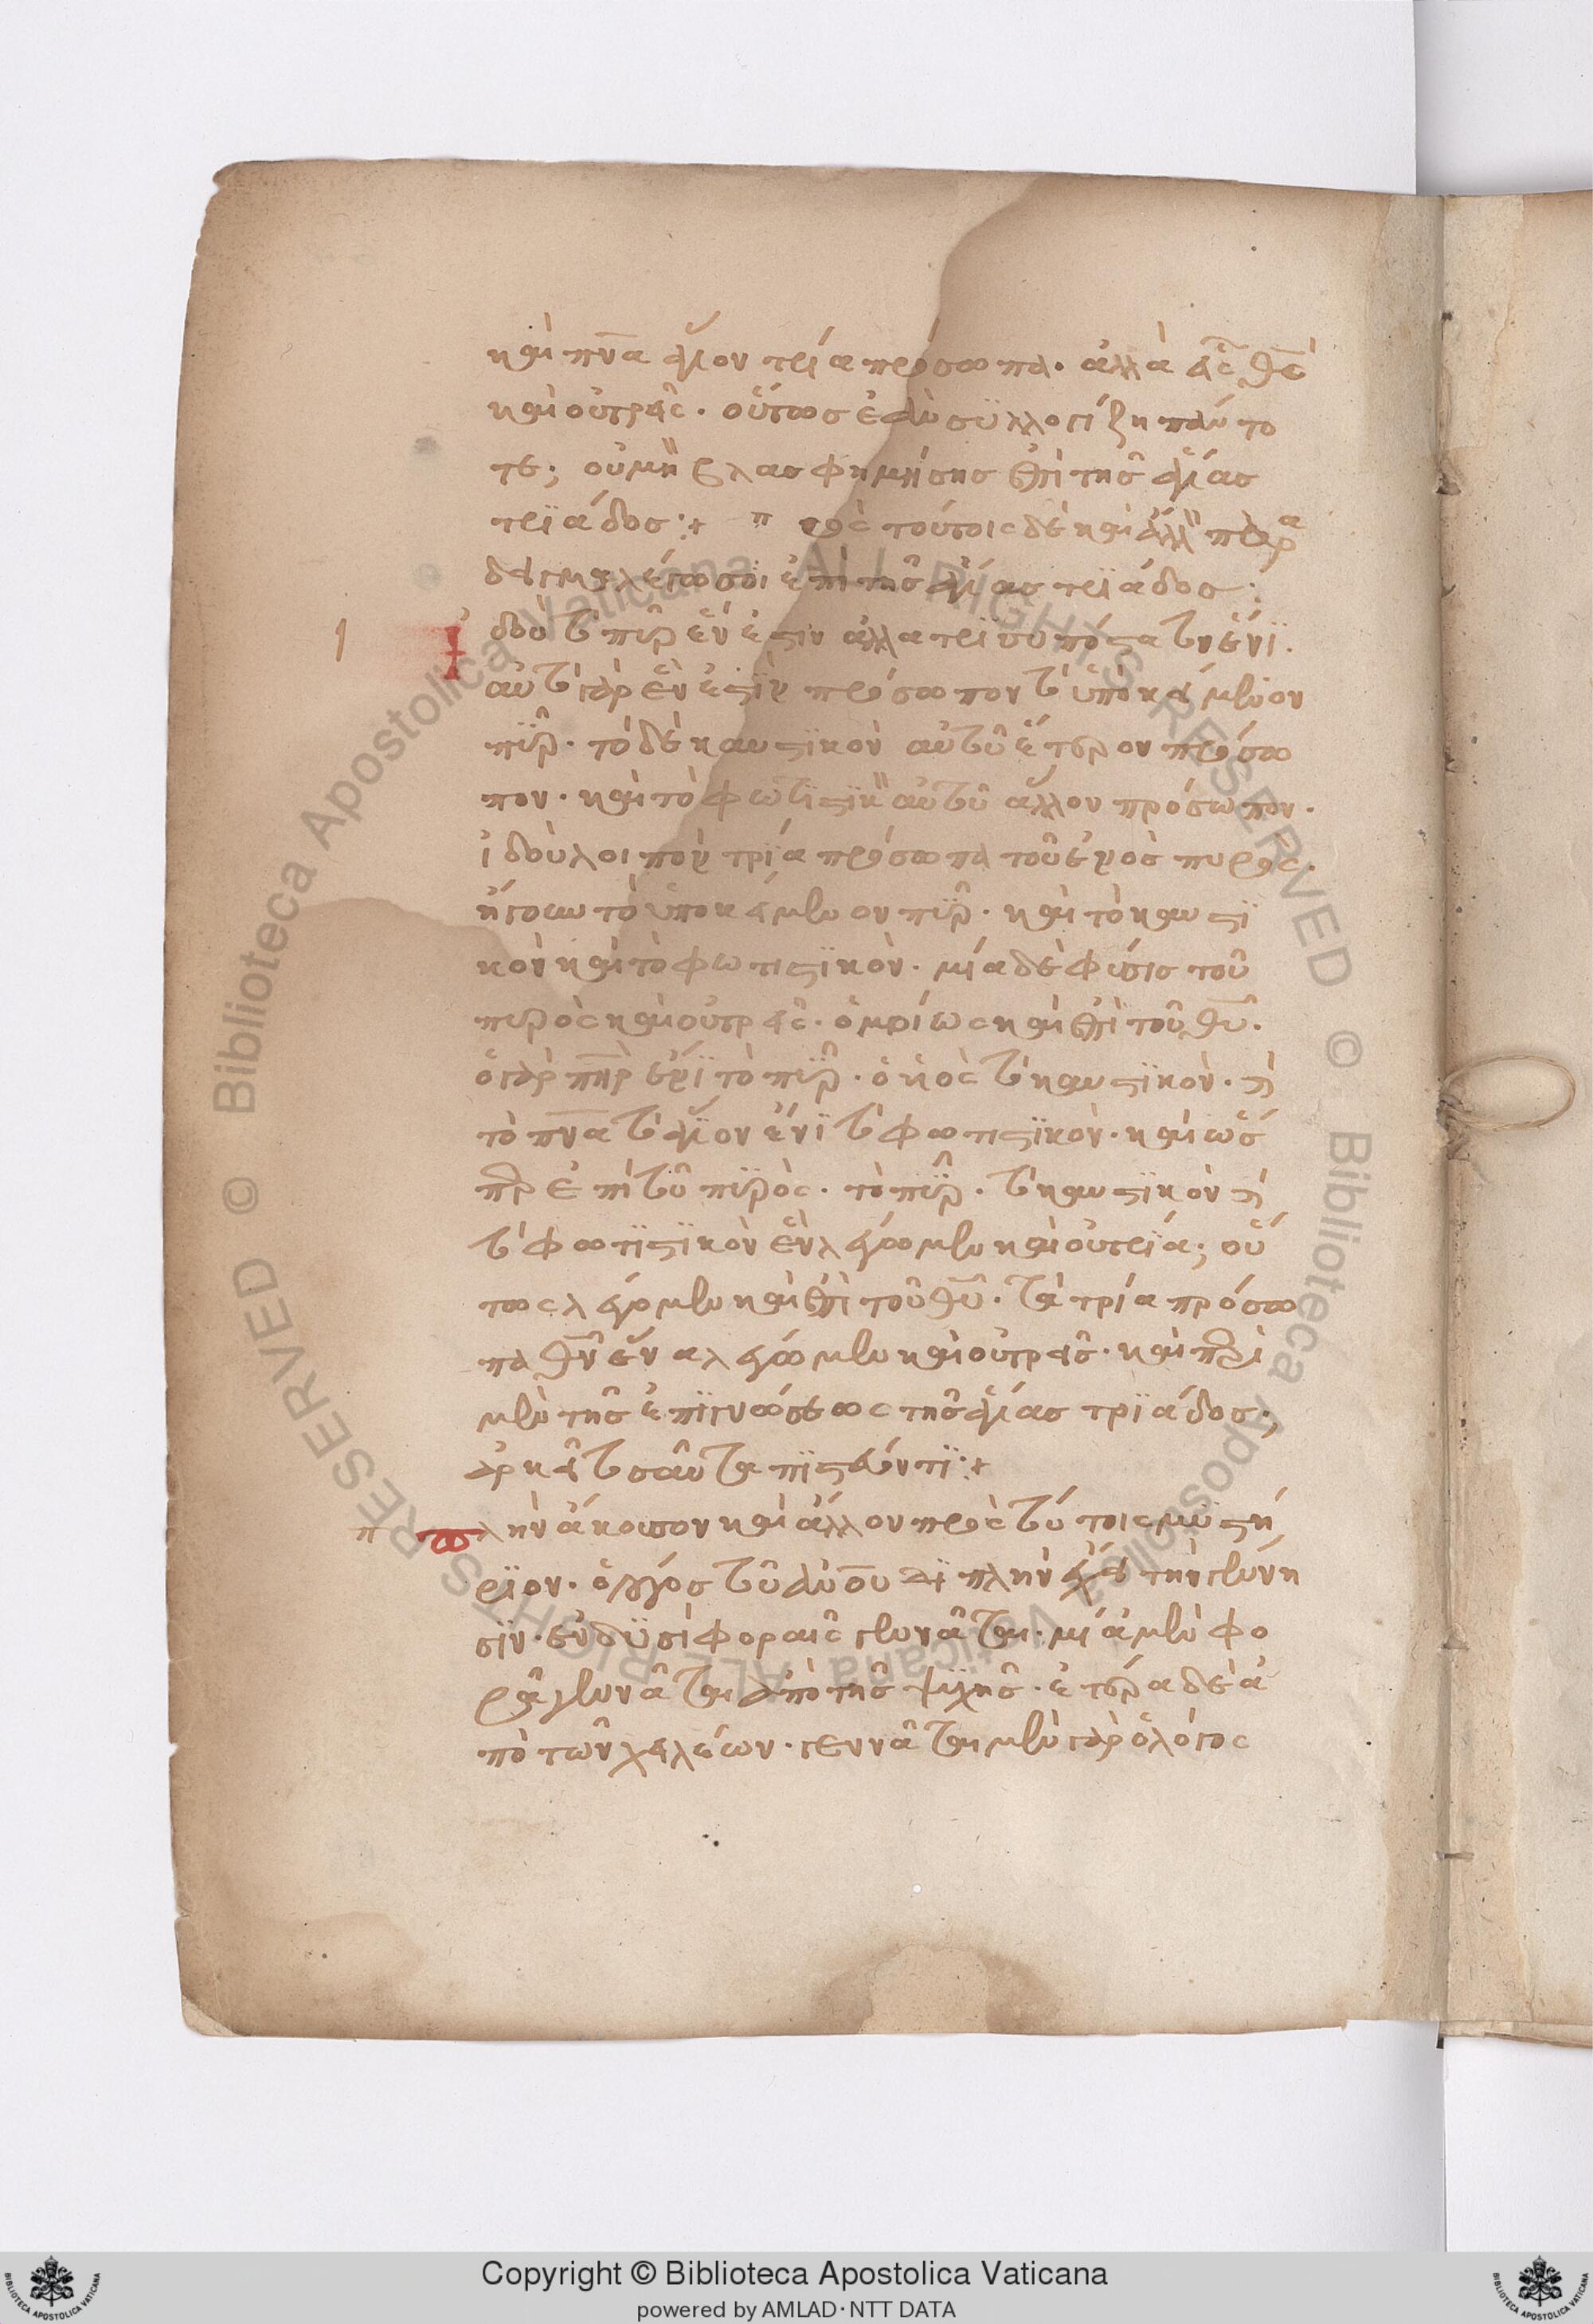 καὶ πνα ἅγιον τρία πρόσωπα. ἀλλὰ εἷς θς
καὶ οὐ τρεῖς. οὕτως ἐὰν συλλογίζη πάντο
τε; οὐ μὴ βλασφημήσης ἐπὶ τῆς ἁγίας
τριάδος:+ πρὸς τούτοις δὲ καὶ ἄλλ πὰρα
δειγμα λέγω σοι ἐπὶ τῆς ἁγίας τριάδος:
Ἰδοὺ τὸ πῦρ ἕν ἐστιν ἀλλα τρισυπόστατον ἐνϊ.
αὐτὸ γὰρ ἓν ἐστϊν πρόσωπον τὸ ὑποκείμενον
πῦρ. τὸ δὲ καυστϊκὸν αὐτοῦ ἕτερον πρόσω
πον. καὶ τὸ φωτϊστϊκὸν αὐτοῦ ἄλλον πρόσωπον.
ἰδοὺ λοιπὸν τρία πρόσωπα τοῦ ἑνὸς πυρὸς.
ἤγουν τὸ ὑποκείμενον πῦρ. καὶ τὸ καυστϊ
κὸν καὶ τὸ φωτιστϊκὸν. μία δὲ φύσις τοῦ
πυρὸς καὶ οὐ τρεῖς. ὁμοίως καὶ ἐπὶ τοῦ θυ.
ὁ γὰρ πηρ ἐνϊ τὸ πῦρ. ὁ υἱὸς τὸ καυστϊκὸν. καὶ
τὸ πνα τὸ ἅγϊον ἔνϊ τὸ φωτιστϊκὸν. καὶ ὥσ
περ ἐπὶ τοῦ πυρὸς. τὸ πῦρ. τὸ καυστϊκὸν καὶ
τὸ φωτϊστϊκὸν ἓν λέγωμεν καὶ οὐ τρία; οὕ
τως λέγομεν καὶ ἐπὶ τοῦ θυ. τὰ τρία πρόσω
πα θν ἕνα λέγωμεν καὶ οὐ τρεῖς. καὶ περὶ
μὲν τῆς ἐπϊγνώσεως τῆς ἁγίας τριάδος;
ἀρκεῖ τοσαῦτα πϊστεύοντϊ:+
πλὴν ἄκουσον καὶ ἄλλον πρὸς τούτοις μυστή
ριον. ὁ λόγος τοῦ ανου πλὴν τὴν γέννη
σϊν. ἐν δϋσὶ φοραῖς γεννᾶται. μία μὲν φο
ρᾶ γεννᾶται ἀπὸ τῆς ψϋχῆς. ἑτέρα δὲ ἀ
πὸ τῶν χειλέων. γεννᾶται μὲν γὰρ ὁ λόγος
Copyright © Biblioteca Apostolica Vaticana
powered by AMLAD·NTT DATA